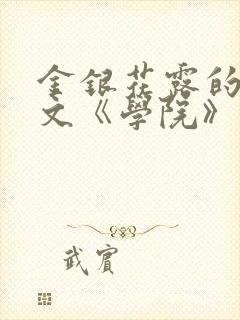 金銀花露的
文《學院》
武賓